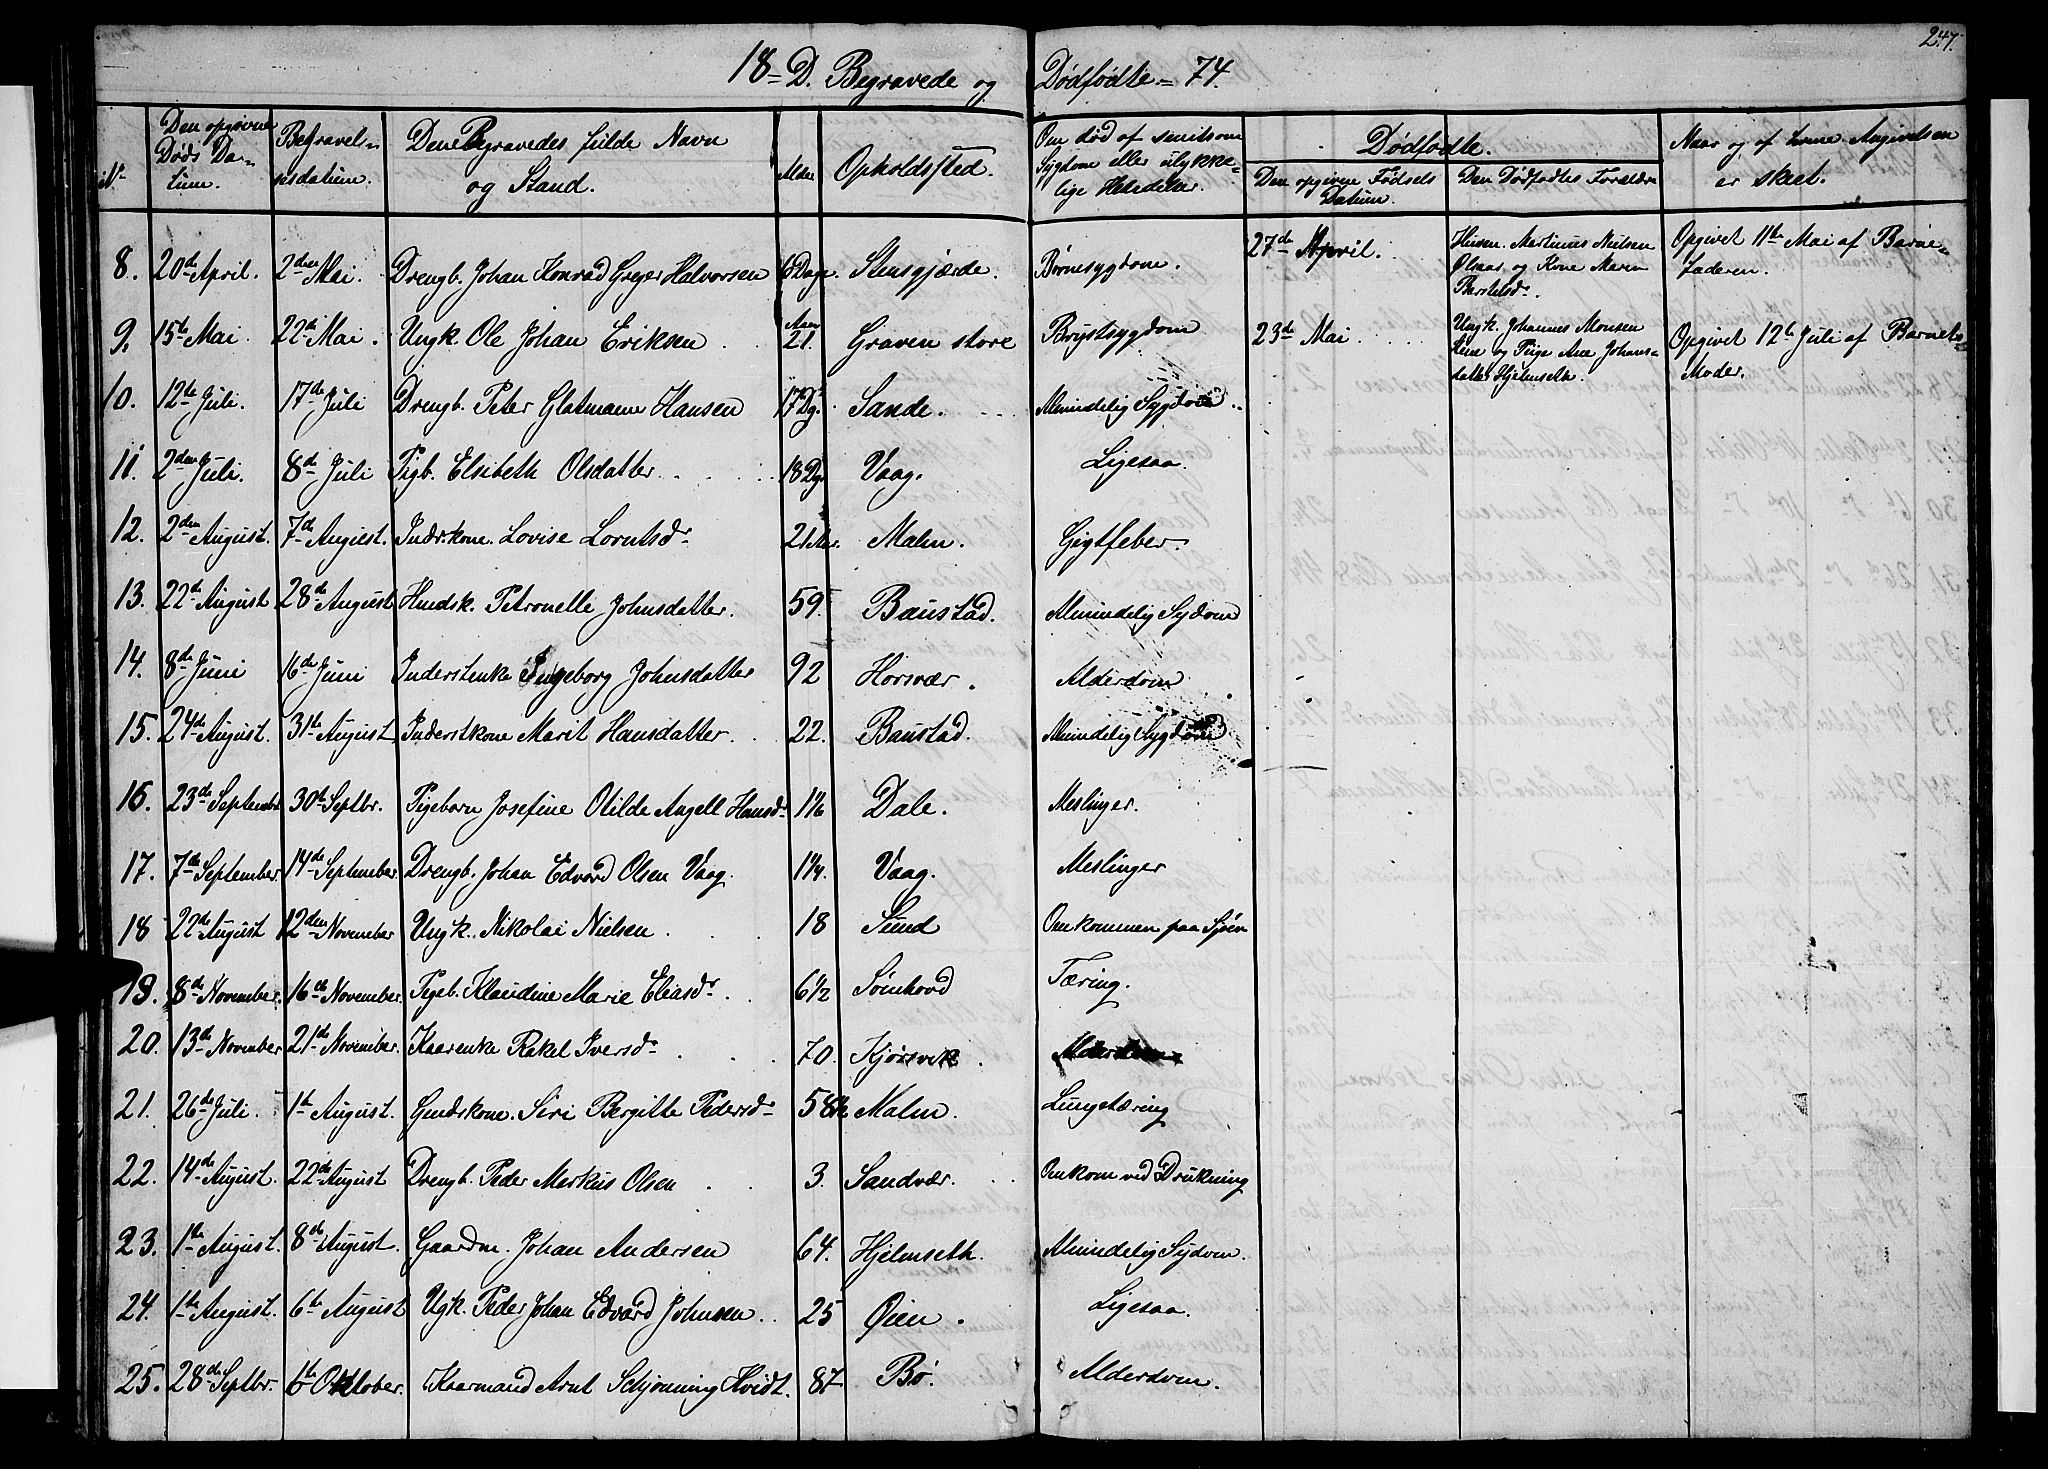 247.
18= D. Begravede og Dødfødte = 74.
No
Den opgivne Døds Da-
tum.
Begravel-
sesdatum.
Den Begravedes fulde Navn
og Stand.
Alder
Opholdssted.
Om død af smitsom
Sygdom eller ulykke-
lige Hendelser.
Dødfødte.
Den opgivne Fødsels
Datum.
Den Dødfødtes Forældre
Naar og af hvem Angivelsen
er skeet.
8. 20de April. 2den Mai. Drengb. Johan Konrad Greger Halvorsen Dage. Stensgjærde. Børnesygdom. 27de April. Husm. Martinus Nielsen Opgivet 11te Mai af Barne-
Ølsaas og Kone Maren faderen.
Berstelsdr.
9. 15te Mai 22de Mai. Ungk. Ole Johan Eriksen Aar 21. Graven store Brystsygdom 23de Mai Ungk. Johannes Monsen Opgivet 12te Juli af Barnets
og Pige Ane Johans- Moder.
datter Hjelmseth.
10. 12te Juli. 17de Juli Drengb. Peter Glatmann Hansen 17 Dg. Sande. Almindelig Sygdom.
11. 2den Juli. 8de Juli Pigb. Elsibeth Olsdatter 18 Dg. Vaag. Ligesaa.
12. 2den August. 7de August. Inds.kone. Lovise Lorntsdr 21 Aar. Malm. Gigtfeber.
13. 22de August 28de August Husk. Petronelle Johnsdatter. 59. Baustad. Almindelig Sydom
14. 8de Juni 16de Juni Inderstenke Ingeborg Johnsdatter 92 Horsvær. Alderdom
15. 24de August. 31te August. Inderstkone Marit Hansdatter. 22. Baustad. Almindelig Sygdom
16. 23de September 30te Septbr. Pigebarn Josefine Otilde Angell Hansdr 1 1/6 Dale. Meslinger.
17. 7de September. 14de September. Drengb. Johan Edvard Olsen Vaag. 1 1/4. Vaag. Meslinger
18 22de August 12den November Ungk. Nikolai Nielsen. 18 Sund Omkommen paa Sjøen
19. 8de November. 16de November. Pigeb. Klaudine Marie Eliasdr. 6 1/2 Sørnhovd Tæring.
20. 13de November 21de November. Kaarenke Rakel Iversdr 70. Kjørsvik. Alderdom
21. 26de Juli. 1te August. Gmdskone. Siri Bergitte Pedersdr 58 Malm. Lungetæring
22. 14de August. 22de August Drengb. Peder Markus Olsen 3. Sandvær. Omkom ved Drukning
23. 1te August. 8de August. Gaardm. Johan Andersen 64. Hjelmseth. Almindelig Sydom.
24. 1te August. 6te August Ugk. Peder Johan Edvard Johnsen. 25 Øien. Ligesaa.
25. 28de Septbr. 6te Oktober. Kaarmand Arnt Schjønning Hvidt. 87 Bø. Alderdom.